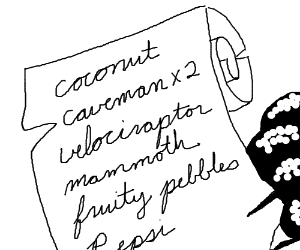 coconut
caveman x 2
velociraptor
mammoth
fruity pebbles
Pepsi